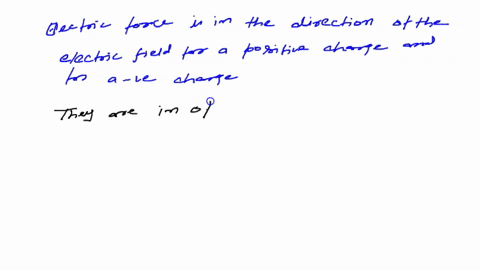 Electric force is in the direction of the
electric field for a positive charge and
for a -ve charge
They are in op